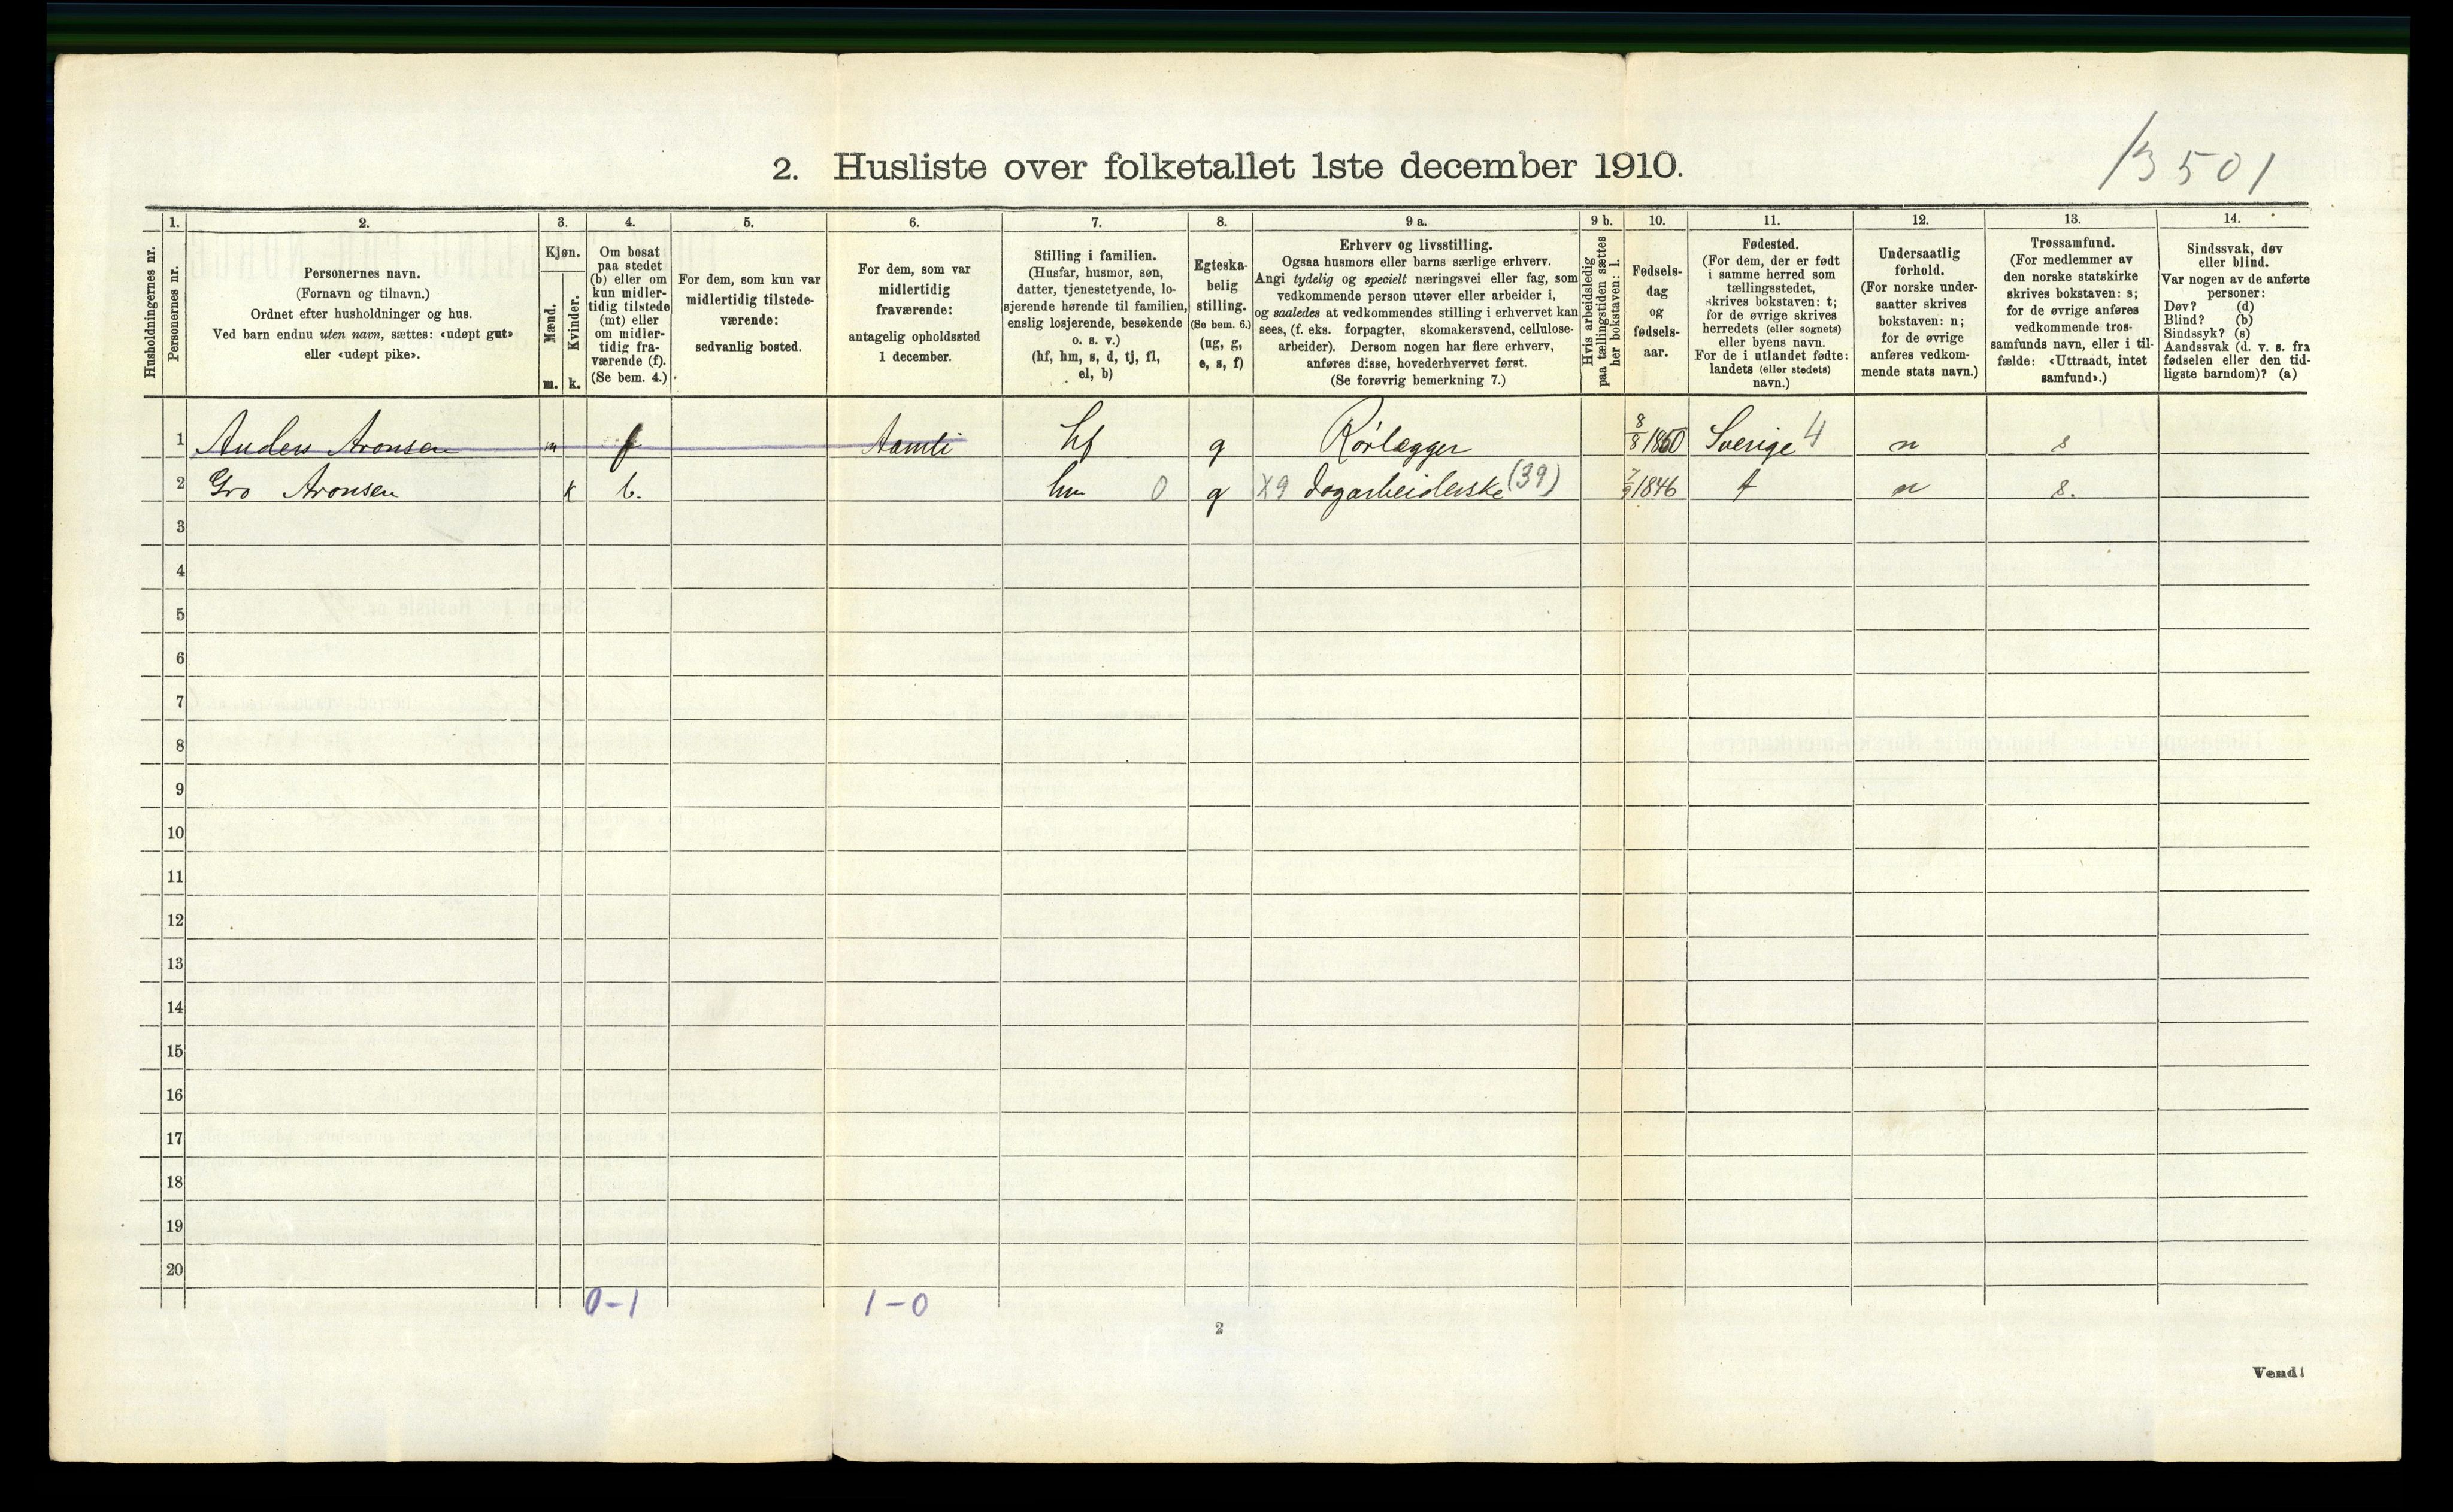 13501
2. Husliste over folketallet 1ste december 1910.
Husholdningernes nr.
1.
Personernes nr.
2.
Personernes navn.
(Fornavn og tilnavn.)
Ordnet efter husholdninger og hus.
Ved barn endnu uten navn, sættes: «udøpt gut»
eller «udøpt pike».
3.
Kjøn.
Mænd.
m.
Kvinder.
k.
4.
Om bosat
paa stedet
(b) eller om
kun midler-
tidig tilstede
(mt) eller
om midler-
tidig fra-
værende (f).
(Se bem. 4.)
5.
For dem, som kun var
midlertidig tilstede-
værende:
sedvanlig bosted.
6.
For dem, som var
midlertidig
fraværende:
antagelig opholdssted
1 december.
7.
Stilling i familien.
(Husfar, husmor, søn,
datter, tjenestetyende, lo-
sjerende hørende til familien,
enslig losjerende, besøkende
o. s. v.)
(hf, hm, s, d, tj, fl,
el, b)
8.
Egteska-
belig
stilling.
(Se bem. 6.)
(ug, g,
e, s, f)
9 a.
Erhverv og livsstilling.
Ogsaa husmors eller barns særlige erhverv.
Angi tydelig og specielt næringsvei eller fag, som
vedkommende person utøver eller arbeider i,
og saaledes at vedkommendes stilling i erhvervet kan
sees, (f. eks. forpagter, skomakersvend, cellulose-
arbeider). Dersom nogen har flere erhverv,
anføres disse, hovederhvervet først.
(Se forøvrig bemerkning 7.)
9 b.
Hvis arbeidsledig
paa tællingstiden sættes
her bokstaven: l.
10.
Fødsels-
dag
og
fødsels-
aar.
11.
Fødested.
(For dem, der er født
i samme herred som
tællingsstedet,
skrives bokstaven: t;
for de øvrige skrives
herredets (eller sognets)
eller byens navn.
For de i utlandet fødte:
landets (eller stedets)
navn.)
12.
Undersaatlig
forhold.
(For norske under-
saatter skrives
bokstaven: n;
for de øvrige
anføres vedkom-
mende stats navn.)
13.
Trossamfund.
(For medlemmer av
den norske statskirke
skrives bokstaven: s;
for de øvrige anføres
vedkommende tros-
samfunds navn, eller i til-
fælde: «Uttraadt, intet
samfund».)
14.
Sindssvak, døv
eller blind.
Var nogen av de anførte
personer:
Døv? (d)
Blind? (b)
Sindssyk? (s)
Aandssvak (d. v. s. fra
fødselen eller den tid-
ligste barndom)? (a)
1 Anders Aronsen m f Aamli hf g Rörlægger 8/8 1860 Sverige 4 n s
2 Gro Aronsen k b. hm 0 g X9 dagarbeiderske (39) 7/9 1846 t n s.
3
4
5
6
7
8
9
10
11
12
13
14
15
16
17
18
19
20
0-1 1-0
2
Vend!